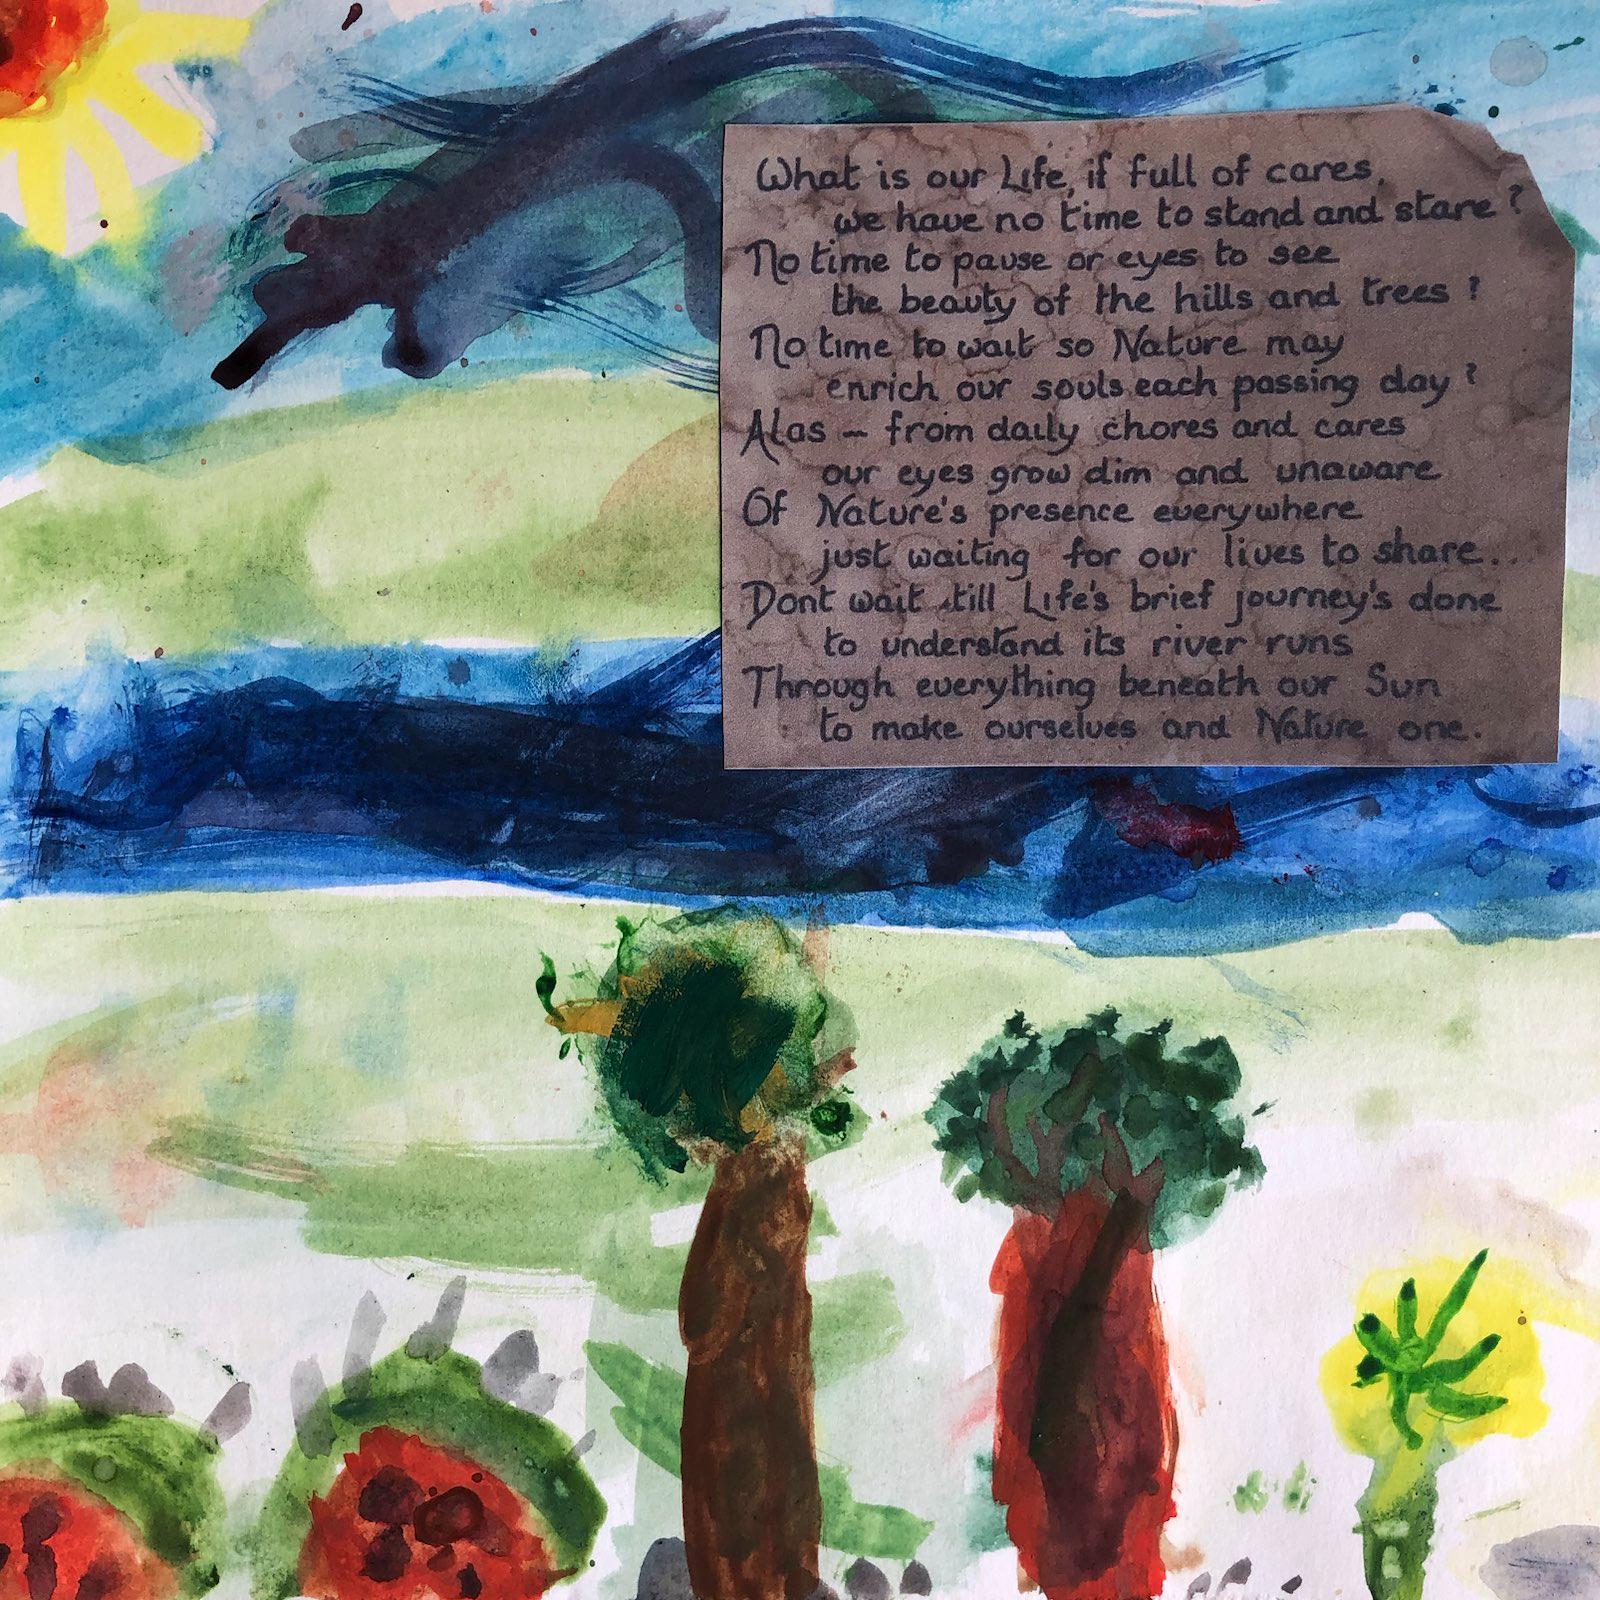 What is our Life, if full of cares,
we have no time to stand and stare?
No time to pause or eyes to see
the beauty of the hills and trees?
No time to wait so Nature may
enrich our souls each passing day?
Alas - from daily chores and cares
our eyes grow dim and unaware
Of Nature's presence everywhere
just waiting for our lives to share...
Dont wait till Life's brief journey's done
to understand its river runs
Through everything beneath our Sun
to make ourselves and Nature one.